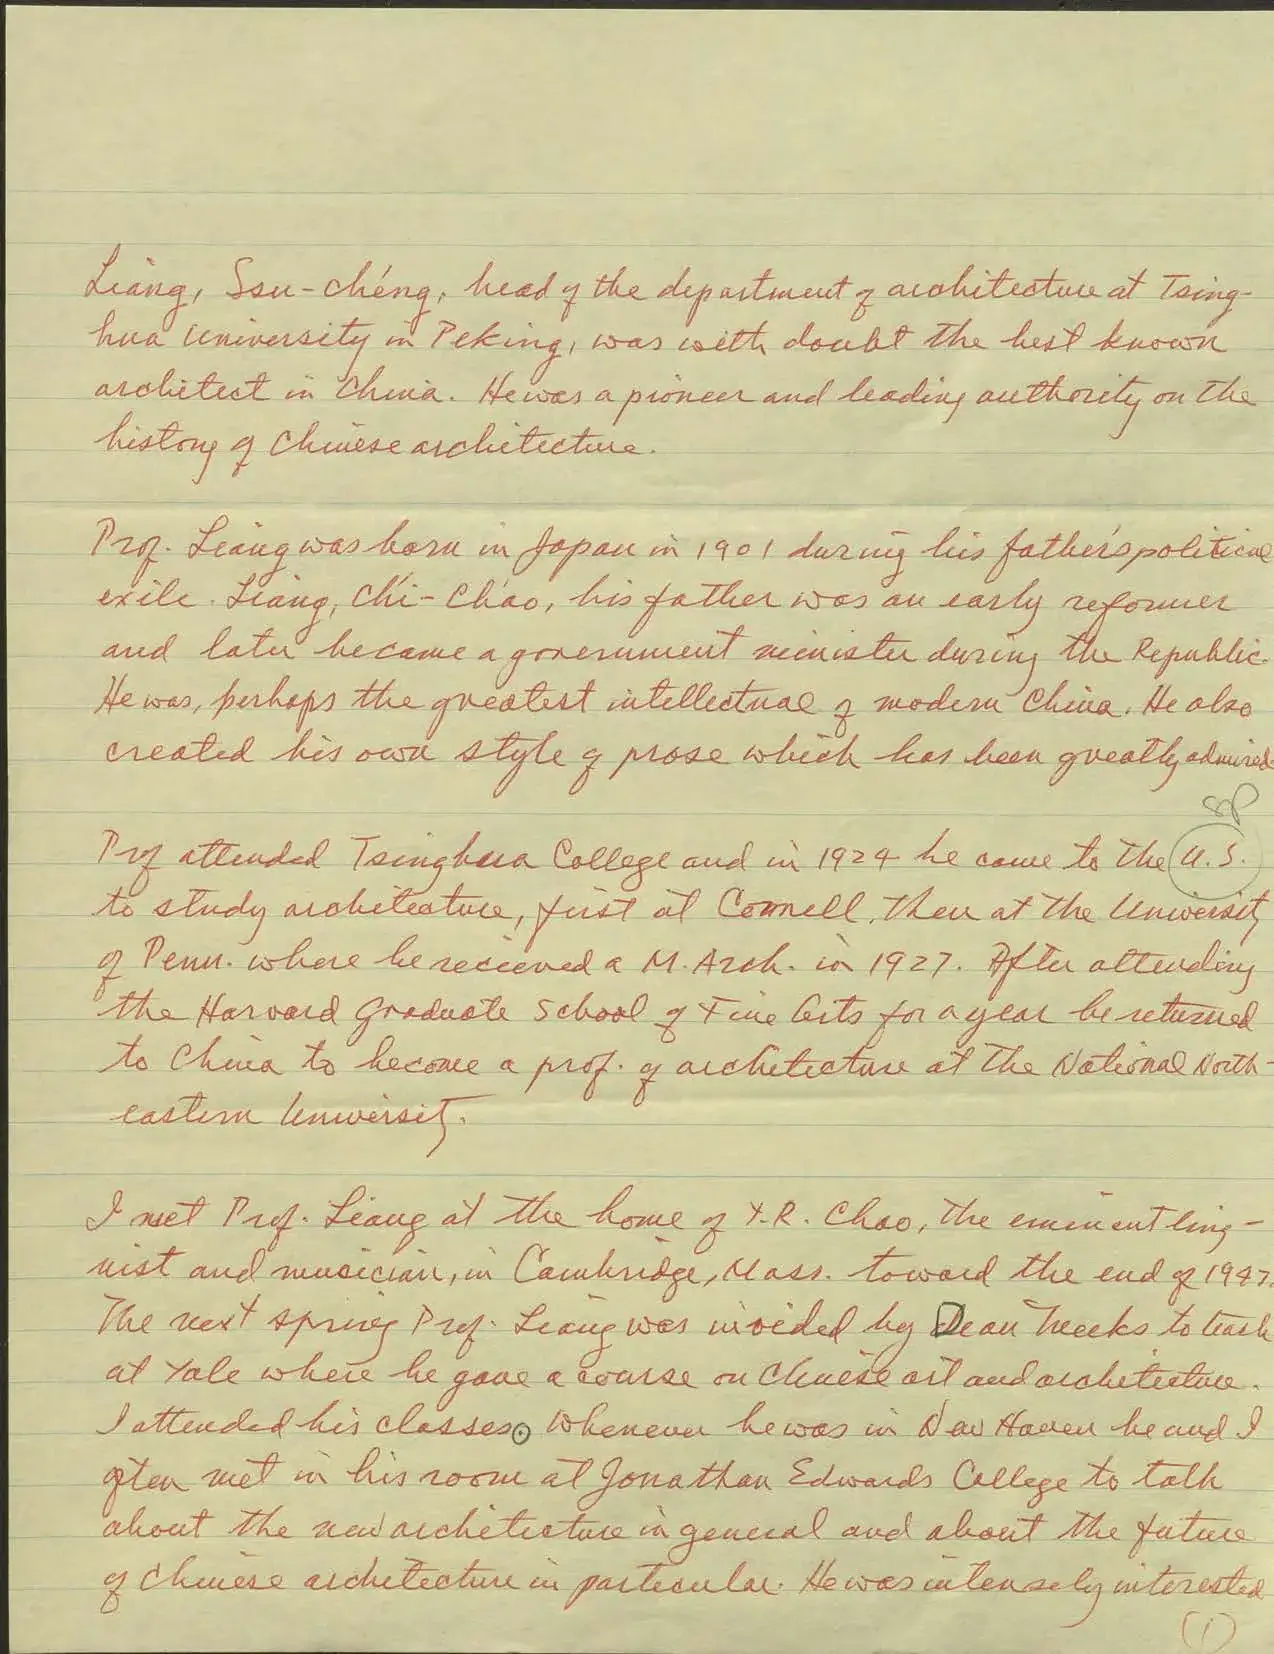 Liang, Ssu-ch'eng, head of the department of architecture at Tsing-
hua University in Peking, was with doubt the best known
architect in China. He was a pioneer and leading authority on the
history of Chinese architecture.
Prof. Liang was born in Japan in 1901 during his father's political
exile. Liang, Ch'i-Ch'ao, his father was an early reformer
and later became a government minister during the Republic.
He was, perhaps the greatest intellectual of modern China. He also
created his own style of prose which has been greatly admired.
sp
Prof attended Tsinghua College and in 1924 he came to the U.S.
to study architecture, first at Cornell, then at the University
of Penn. where he recieved a M. Arch. in 1927. After attending
the Harvard Graduate School of Fine Arts for a year he returned
to China to become a prof. of architecture at the National North-
eastern University.
I met Prof. Liang at the home of Y.R. Chao, the eminent ling-
uist and musician, in Cambridge, Mass. toward the end of 1947.
The next spring Prof. Liang was invided by Dean Meeks to teach
at Yale where he gave a course on Chinese art and architecture.
I attended his classes. Whenever he was in New Haven he and I
often met in his room at Jonathan Edwards College to talk
about the new architecture in general and about the future
of Chinese architecture in particular. He was intensely interested
(1)